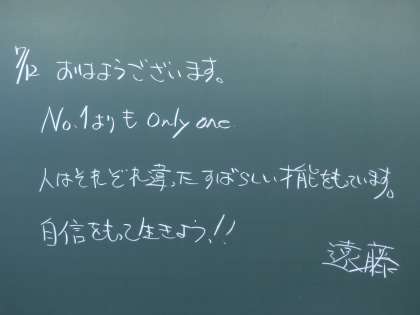 7/12 おはようございます。
No.1よりも Only one
人はそれぞれ違ったすばらしい才能をもっています。
自信をもって生きよう!!
遠藤